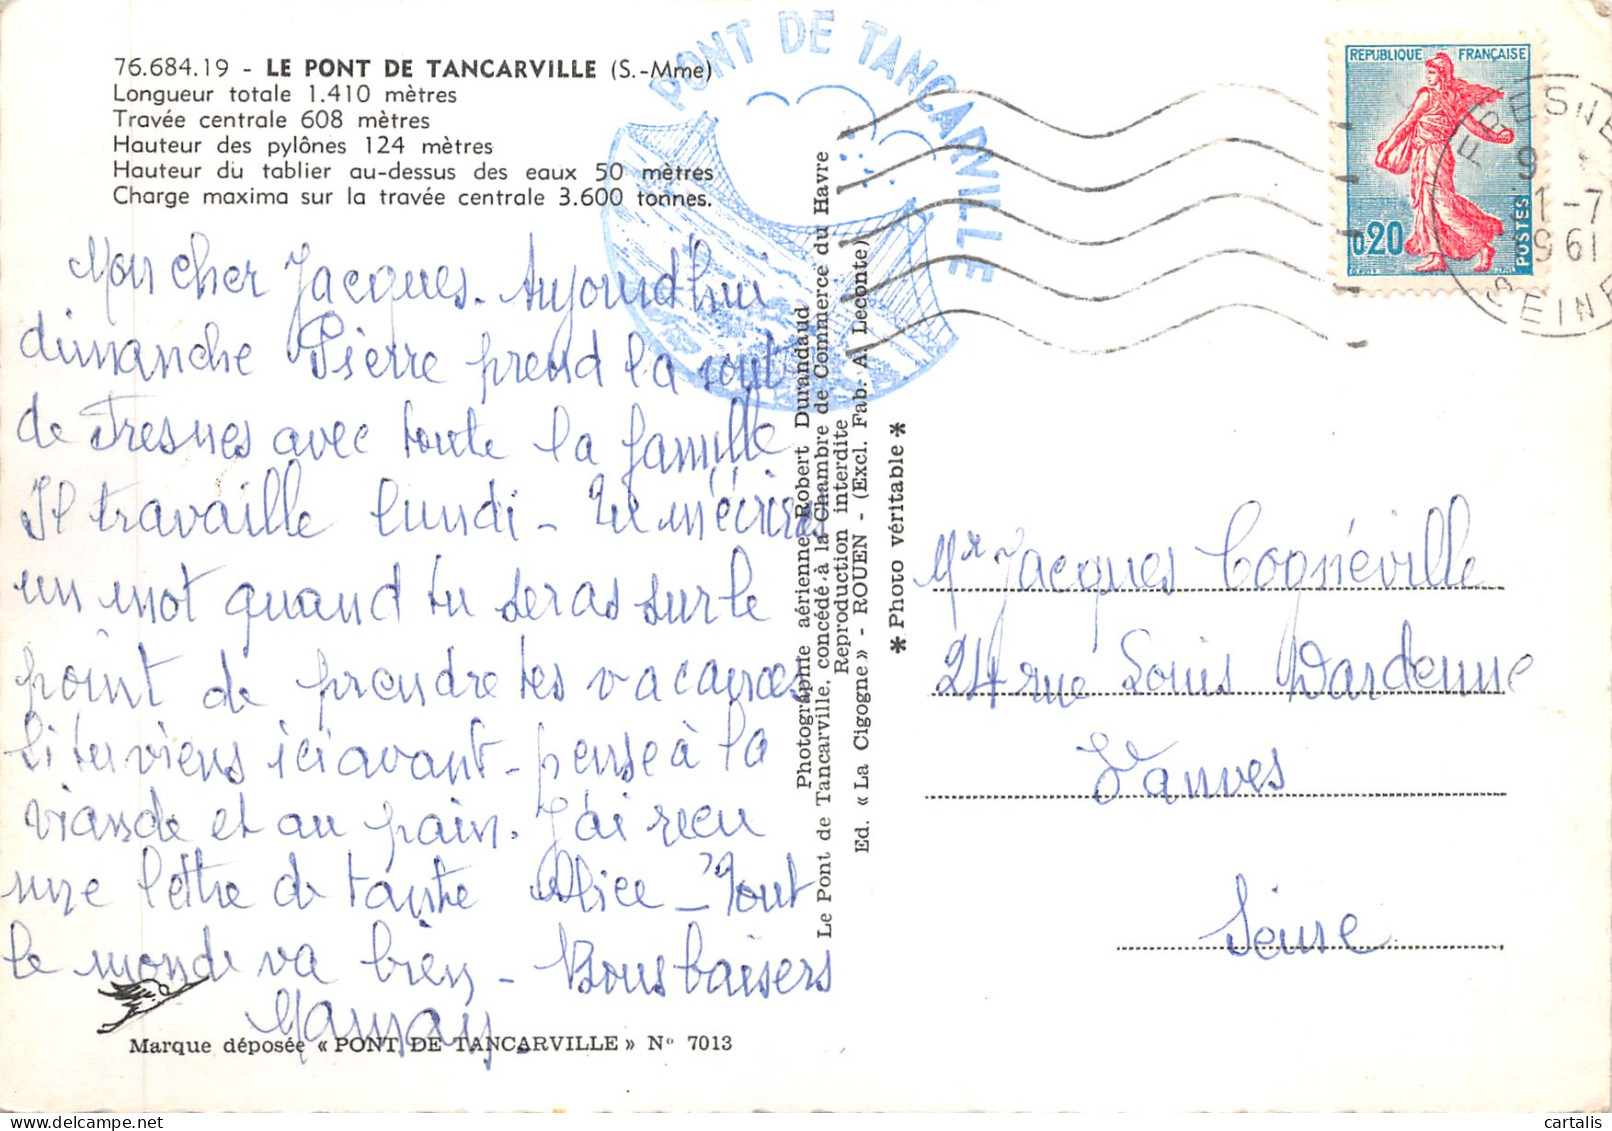 76.684.19 - LE PONT DE TANCARVILLE (S.-Mme)
Longueur totale 1.410 mètres
Travée centrale 608 mètres
Hauteur des pylônes 124 mètres
Hauteur du tablier au-dessus des eaux 50 mètres
Charge maxima sur la travée centrale 3.600 tonnes.
PONT DE TANCARVILLE
REPUBLIQUE FRANÇAISE
0,20
POSTES
FRESNES
9
1-7
1961
SEINE
Mon cher Jacques. Aujourd'hui
dimanche Pierre prend la rout
de Fresnes avec toute la famille
Il travaille lundi - Tu m'écriras
un mot quand tu seras sur le
point de prendre tes vacances
si tu viens ici avant - pense à la
viande et au pain. J'ai reçu
une lettre de tante Alice - Tout
le monde va bien - Bons baisers
Maman.
Marque déposée « PONT DE TANCARVILLE » N° 7013
Photographie aérienne Robert Durandaud
Le Pont de Tancarville, concédé à la Chambre de Commerce du Havre
Reproduction interdite
Ed. « La Cigogne » - ROUEN - (Excl. Fab. A. Leconte)
* Photo véritable *
Mr Jacques Cognéville
24 rue Louis Dardenne
Vanves
Seine
cartalis